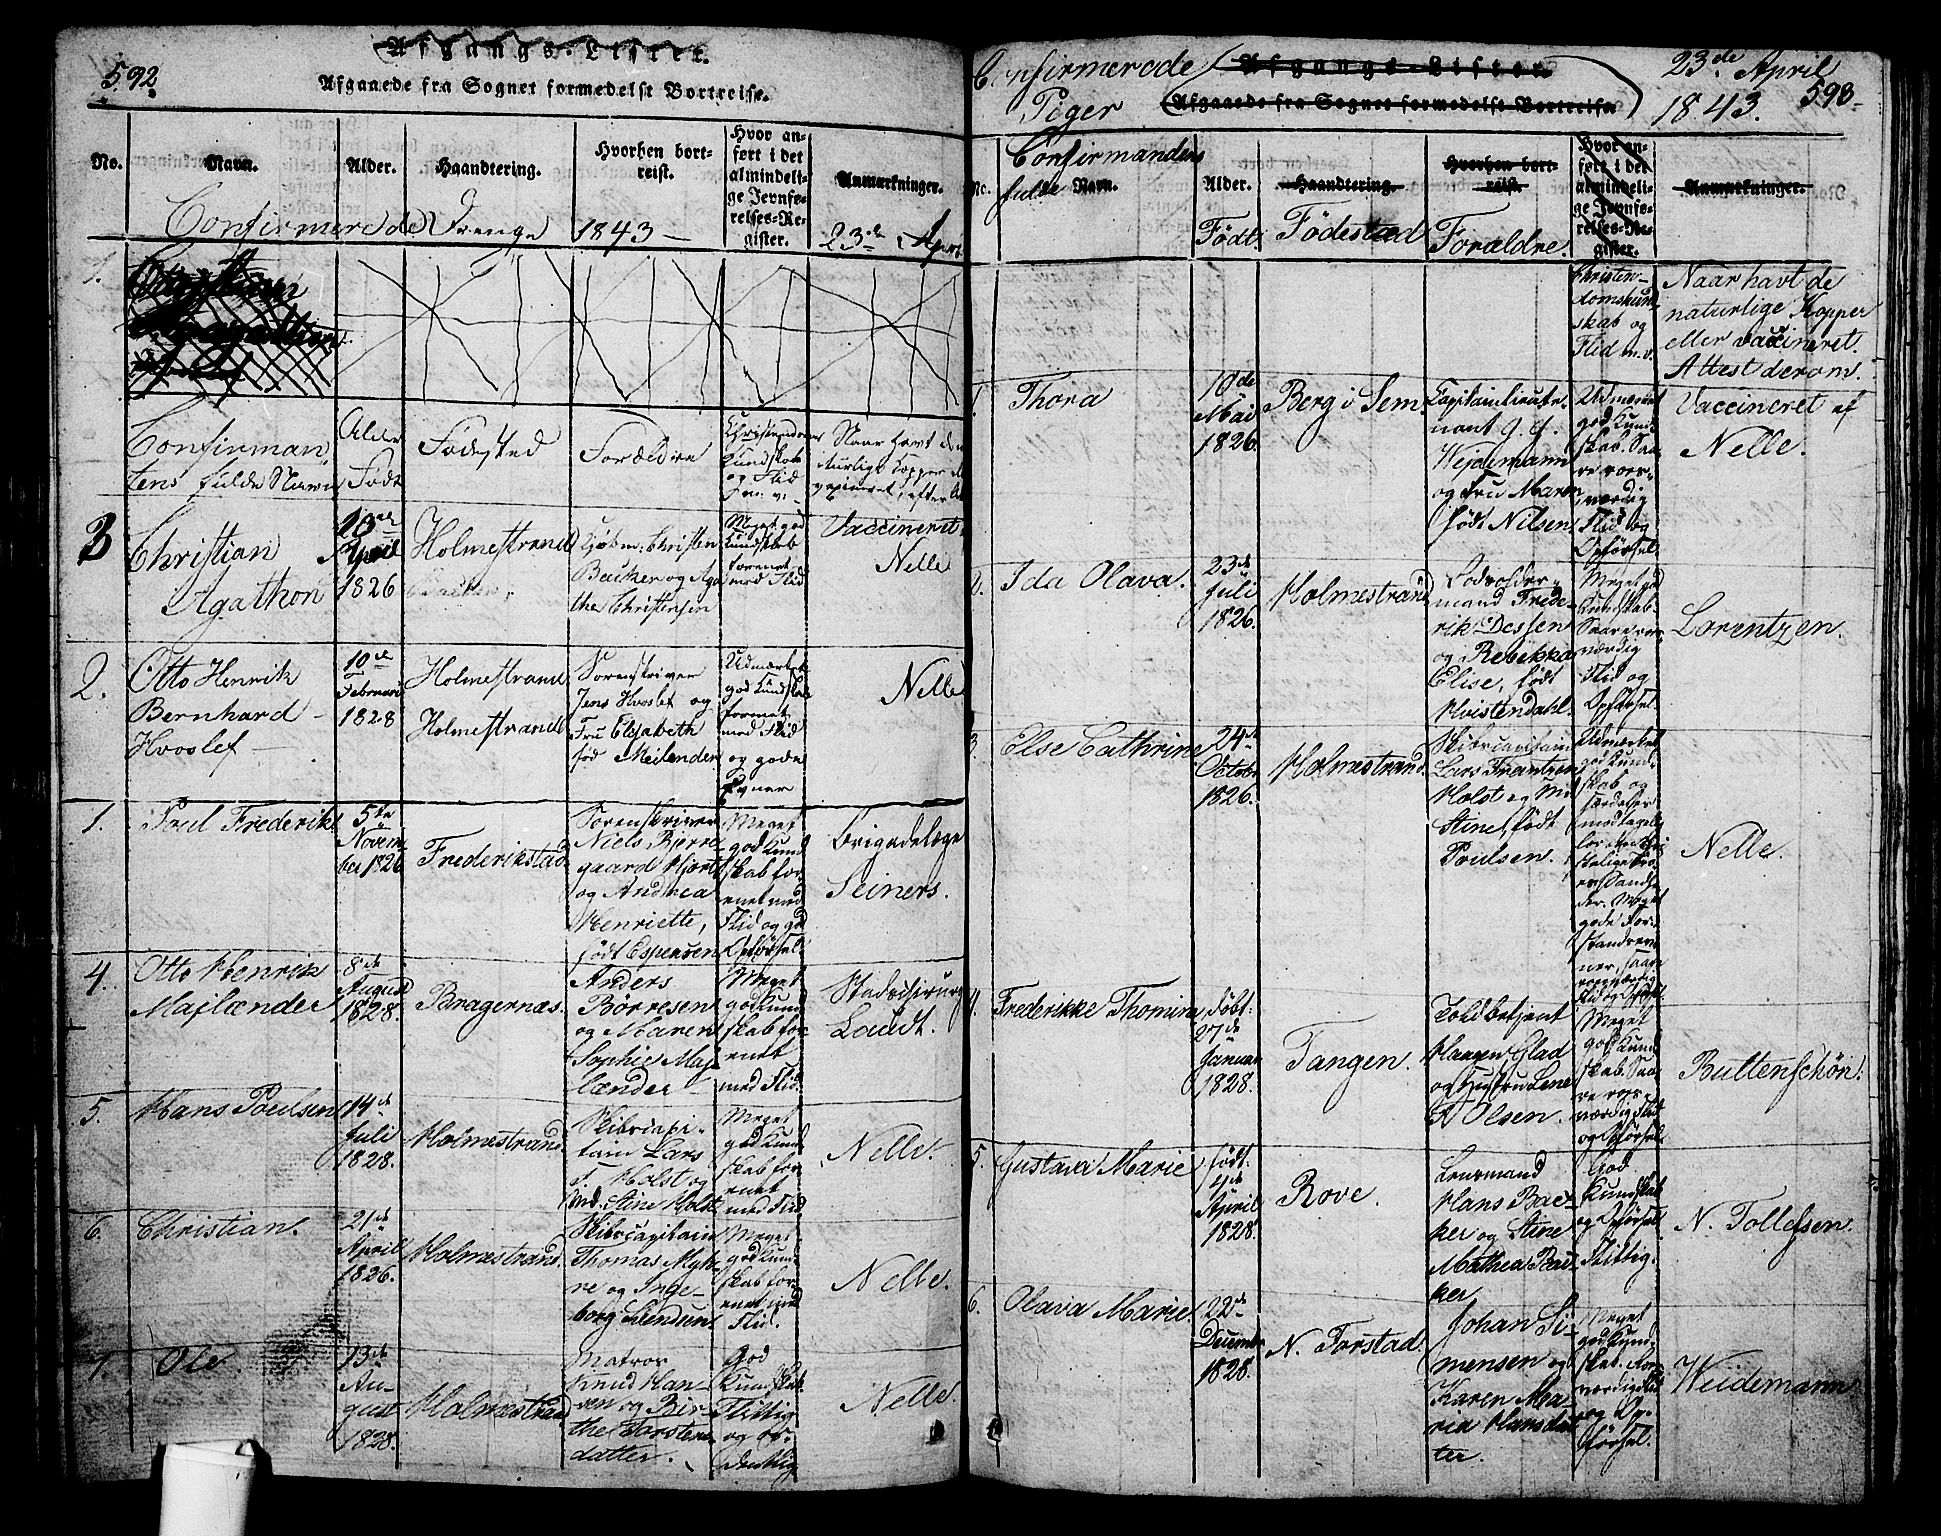 592
Afgangs-Lister.
Afgaaede fra Sognet formedelst Bortreise.
No.
Navn.
Alder.
Haandtering.
Hvorhen bort-
reist.
Hvor an-
ført i det
almindeli-
ge Jevnfø-
relses-Re-
gister.
Anmærkninger.
Confirmerede Drenge 1843 — 23de April
1.
Confirman
tens fulde Navn
Alder
Født
Fødested
Forældre
Christendoms
Kundskab
og Flid
m. v.
3
Christian
Agathon
April
1826
Holmestrand
Kjøbm: Christen
Backer og Aga
the Christensen
Meget god
Kundskab
forenet
med Flid
Vaccineret
Nelle
2.
Otto Henrik
Bernhard
Hvoslef
10de
Februari
1828
Holmestrand
Holmestrand
Sorenskriver
Jens Hvoslef og
Fru Elisabeth
fød Meilender
Udmærket
god Kundskab
forenet
med Flid
og gode
Evner
Nelle
1.
Poul Frederik
5te
Novem
ber 1826
Frederikstad
Sorenskriver
Niels Bjerre
gaard Hjort
og Andrea
Henriette,
født Espensen
Meget
god Kund
skab for
enet med
Flid og god
Opførsel.
Brigadelæge
Seiners.
4.
Otto Henrik
Majlænder
8de
August
1828.
Bragernæs.
Anders
Børresen
og Maren
Sophie Maj
lænder
Meget
god Kund
skab for
enet
med Flid.
Stadschirurg
Laudt.
5.
Hans Poulsen
14de
Juli
1828.
Holmestrand.
Skibscapi-
tain Lars
F. Holst og
Md. Stine Holst
Meget
god Kund
skab for
enet
med Flid
Nelle.
6.
Christian.
21de
April
1826.
Holmestrand.
Skibscapitain
Thomas Myh
re og Inge-
borg
Meget
god Kund
skab for
enet med
Flid.
Nelle.
7.
Ole.
13de
Au-
gust
1828.
Holmestrand
Matros
Knud Han
sen og Bir
the Torstens
datter.
God
Kundskab
Flittig
og or-
dentlig
Nelle.
Confirmerede
Piger
Afgangs-Lister.
Afgaaede fra Sognet formedelst Bortreise
23de April
1843.
593
No.
Confirmandens
fulde Navn.
Alder.
Født.
Haandtering.
Fødested
Hvorhen bort-
reist.
Forældre.
Hvor an-
ført i det
almindeli-
ge Jevnfø-
relses-Re-
gister.
Anmærkninger.
Christen-
domskund-
skab og
Flid m. v.
Naar havt de
naturlige Kopper
eller vaccineret.
Attest derom.
1
Thora
10de
Mai
1826.
Berg i Sem
Capitainlieute-
nant J. J.
Wejdemann
og Fru Maren
født Nilsen
Udmærket
god Kund
skab. Saa
re roes-
værdig
Flid og
Opførsel.
Vaccineret af
Nelle.
2.
Ida Olava.
23de
Juli
1826.
Holmestrand
Lodsolder-
mand Frede-
rik Dessen
og Rebekka
Elise, født
Hvistendahl.
Meget god
Kundskab.
Saare ros-
værdig
Flid og
Opførsel.
Lorentzen.
3.
Else Cathrine
24de
Octobr
1826.
Holmestrand.
Skibscapitain
Lars Frantzen
Holst og Md
Stine, født
Poulsen.
Udmærket
god Kund-
skab og
Nelle.
4.
Frederikke Thomine
døbt:
27de
Januar
1828.
Tangen.
Toldbetjent
Haagen Glad
og Hustru Lene
T. Olsen.
Meget
god Kund
skab. Saa-
re ros-
værdig Flid
og Opførsel.
Buttenschön.
5.
Gustava Marie
født:
April
1828.
Rove.
Lensmand
Hans Bac-
ker og Stine
Mathea Bac-
ker.
God
Kundskab
og Opførsel.
Flittig.
N. Tollefsen.
6.
Olava Marie.
22de
Decemb
1828.
N. Forstad.
Johan Si-
mensen og
Karen Ma-
ria Hansdat
ter.
Meget
god Kund-
skab. Roes-
værdig Flid
og Op-
førsel.
Weidemann